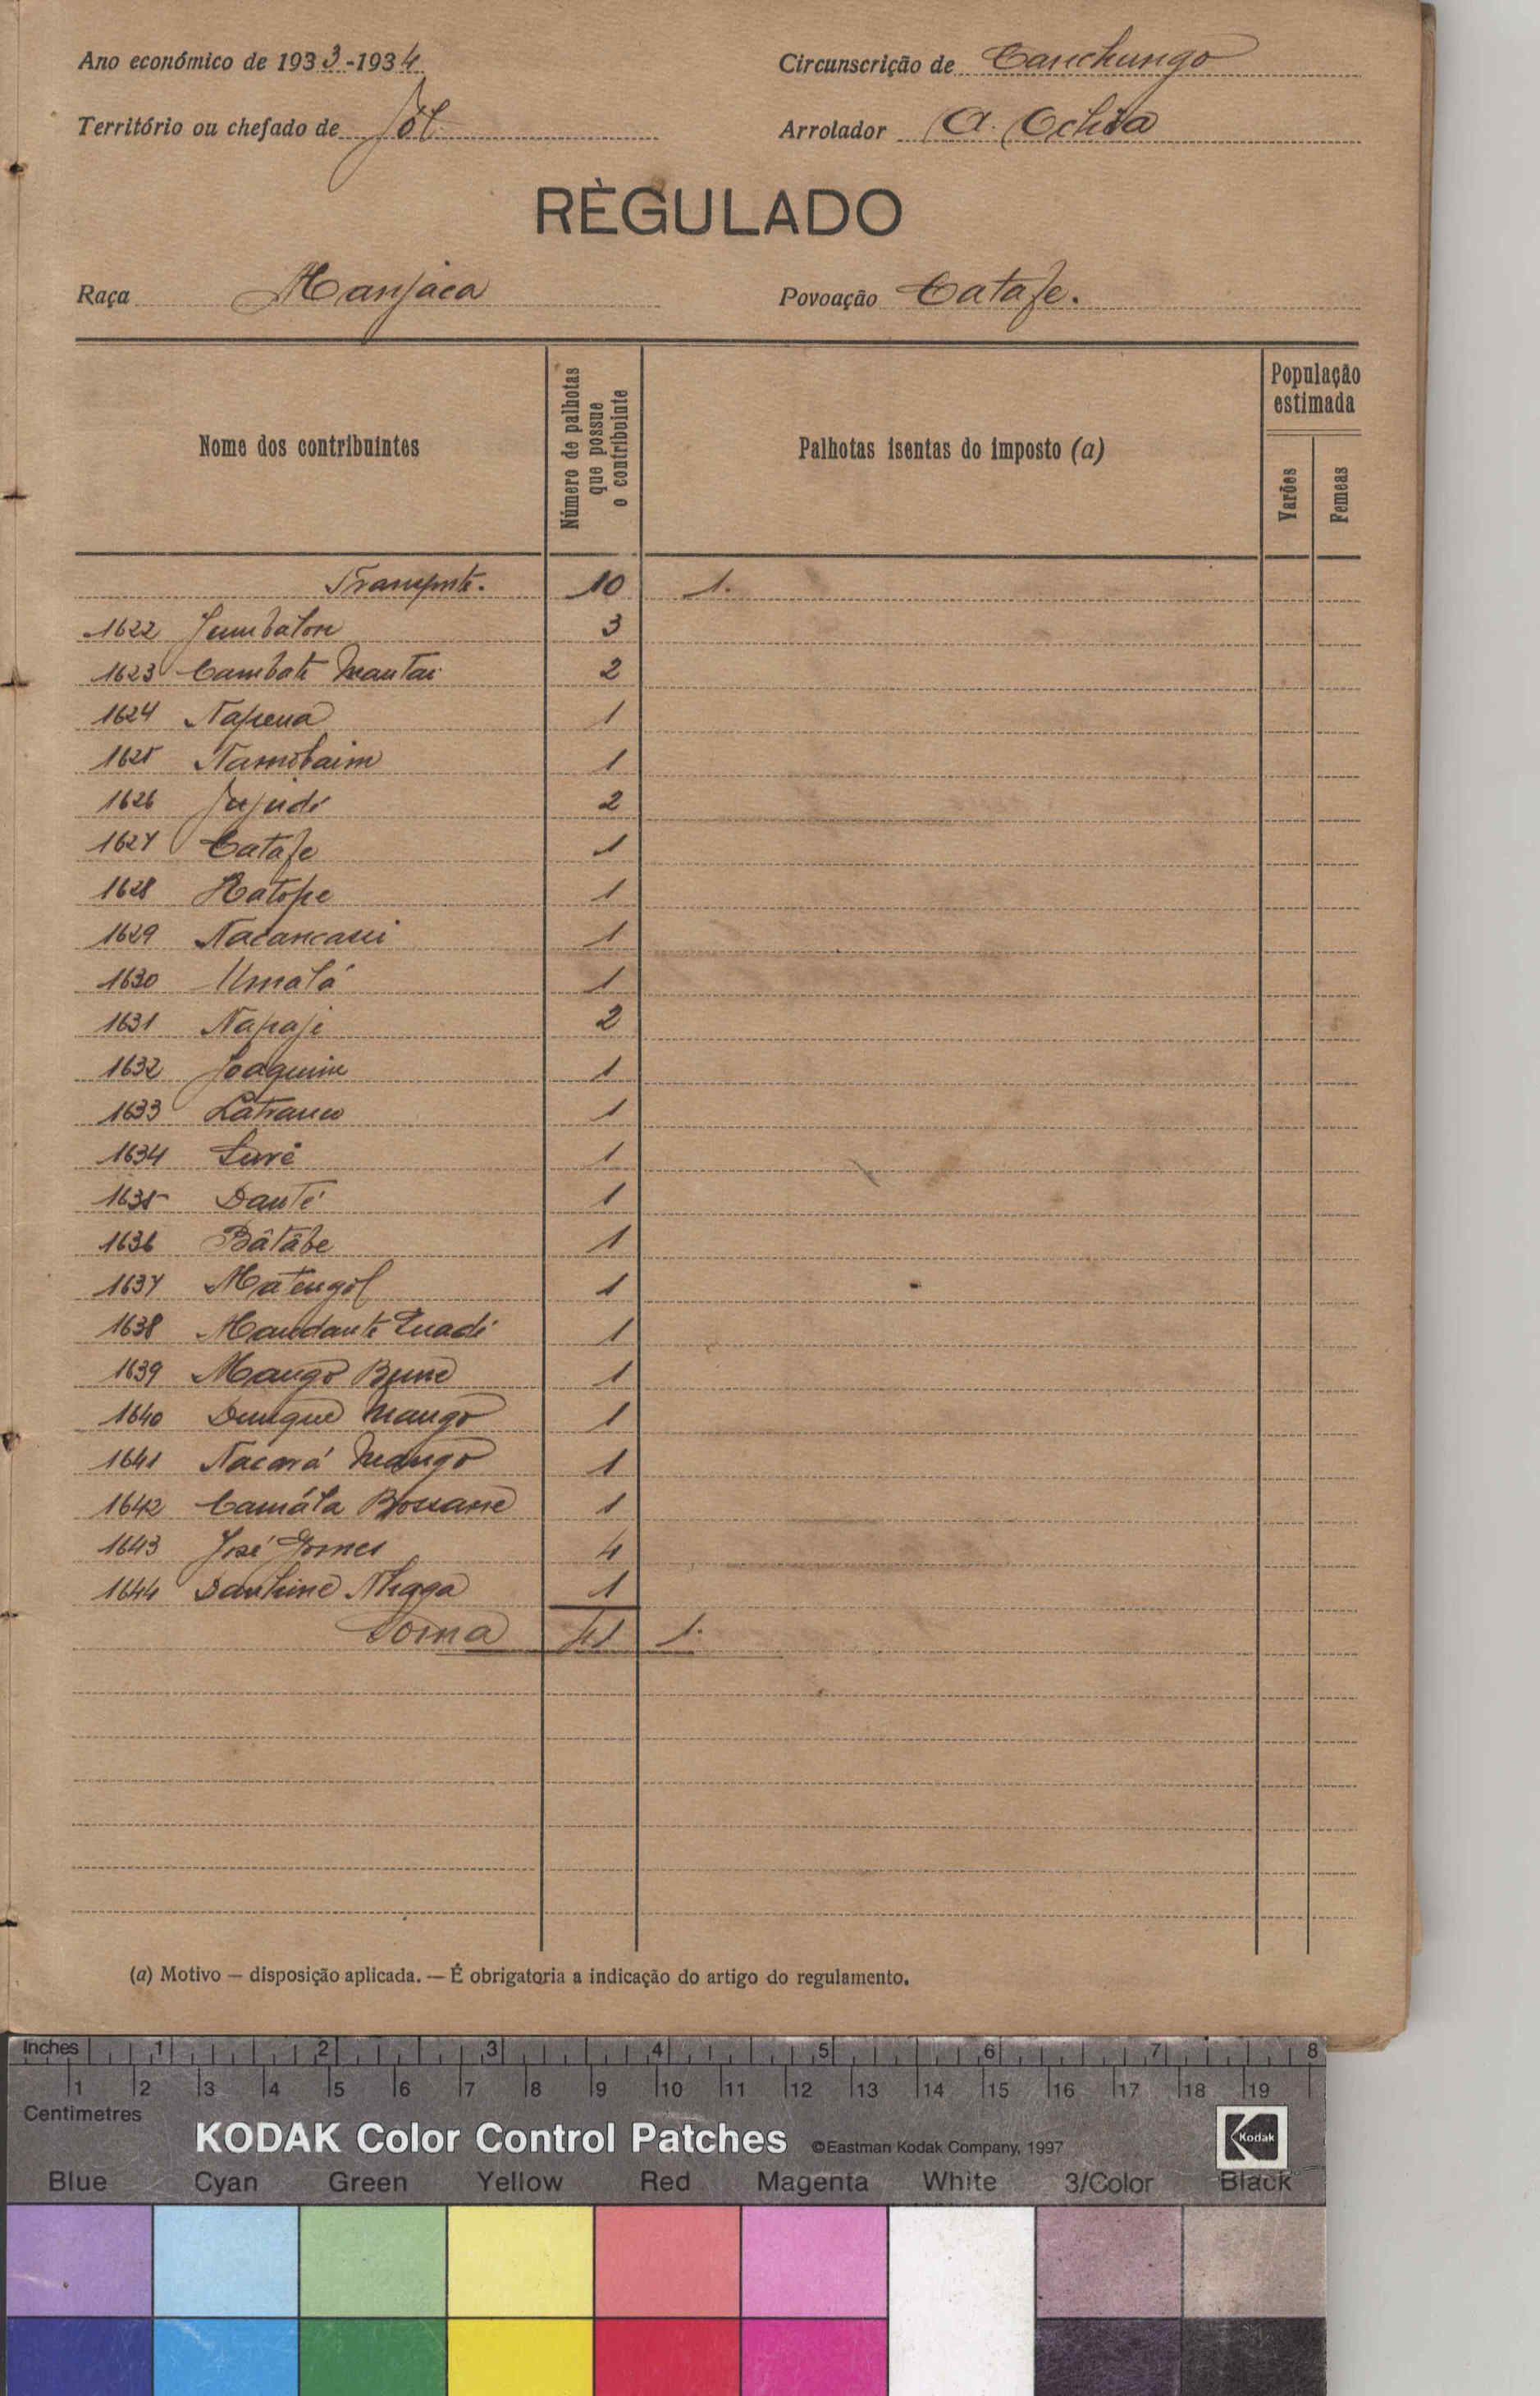 Ano económico de 1933-1934 Circunscrição de Canchungo
Território ou chefado de Jól Arrolador A. Ochôa
RÈGULADO
Raça Manjaca Povoação Catafe.
Nome dos contribuintes
Número de palhotas que possue o contribuinte
Palhotas isentas do imposto (a)
População estimada
Varões
Femeas
Transpte. 10 1.
1622 Jumbaton 3
1623 Cambote Mantai 2
1624 Napena 1
1625 Namobaim 1
1626 Jujudi 2
1627 Catafe 1
1628 Katope 1
1629 Nacancassi 1
1630 Umalá 1
1631 Napaje 2
1632 Joaquim 1
1633 Latranco 1
1634 Luré 1
1635 Danté 1
1636 Bâtâbe 1
1637 Matengól 1
1638 Mandante Quadi 1
1639 Mango Bune 1
1640 Dungue Mango 1
1641 Nacará Mango 1
1642 Camála Bossane 1
1643 José Gomes 4
1644 Danhine Nhaga 1
Soma 41 1.
(a) Motivo — disposição aplicada. — É obrigatoria a indicação do artigo do regulamento.
Inches 1 2 3 4 5 6 7 8
1 2 3 4 5 6 7 8 9 10 11 12 13 14 15 16 17 18 19
Centimetres
KODAK Color Control Patches ©Eastman Kodak Company, 1997 Kodak
Blue Cyan Green Yellow Red Magenta White 3/Color Black